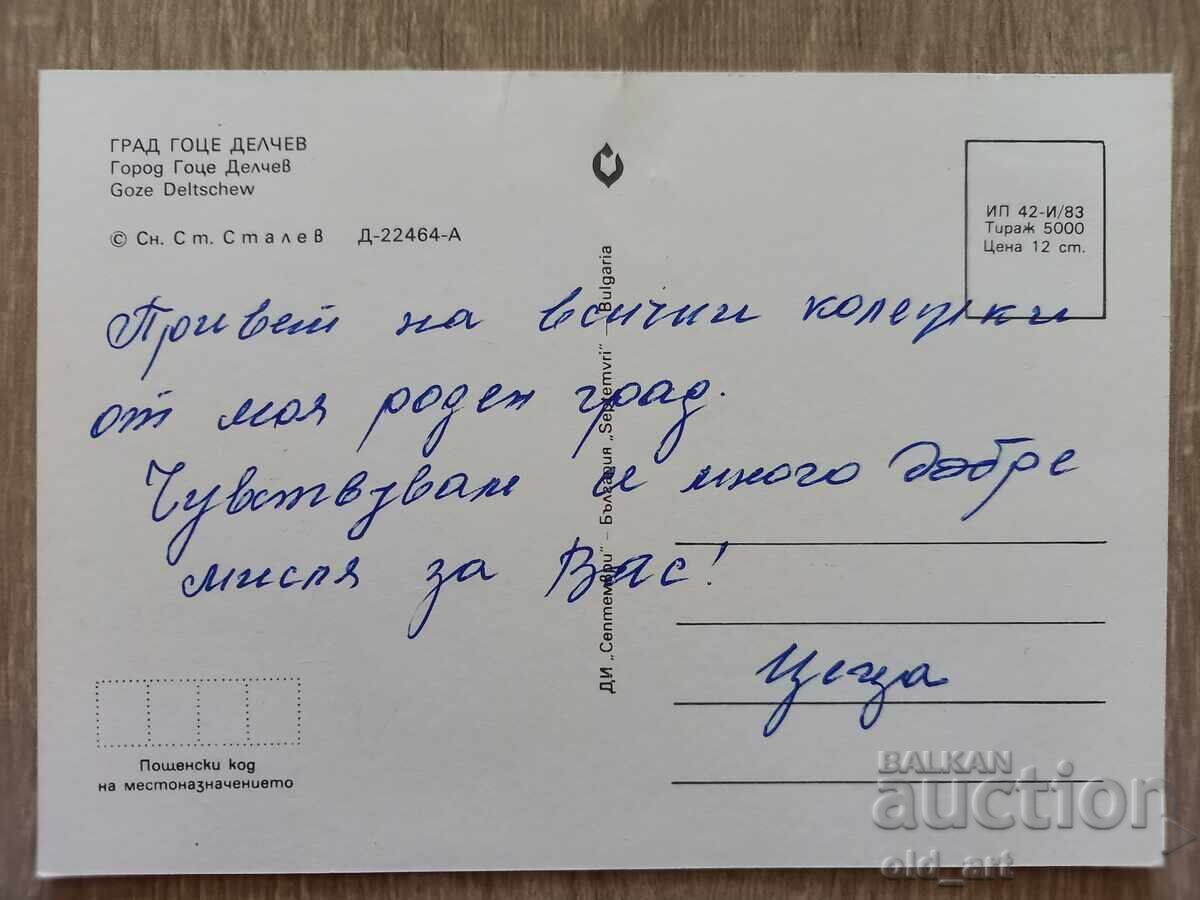 ГРАД ГОЦЕ ДЕЛЧЕВ
Город Гоце Делчев
Goze Deltschew
© Сн. Ст. Сталев Д-22464-А
ИП 42-И/83
Тираж 5000
Цена 12 ст.
Привет на всички колежки
от моя роден град.
Чувствувам се много добре
мисля за Вас!
Цеца
ДИ „Септември" – България „Septemvri" Bulgaria
Пощенски код
на местоназначението
BALKAN
auction
old_art